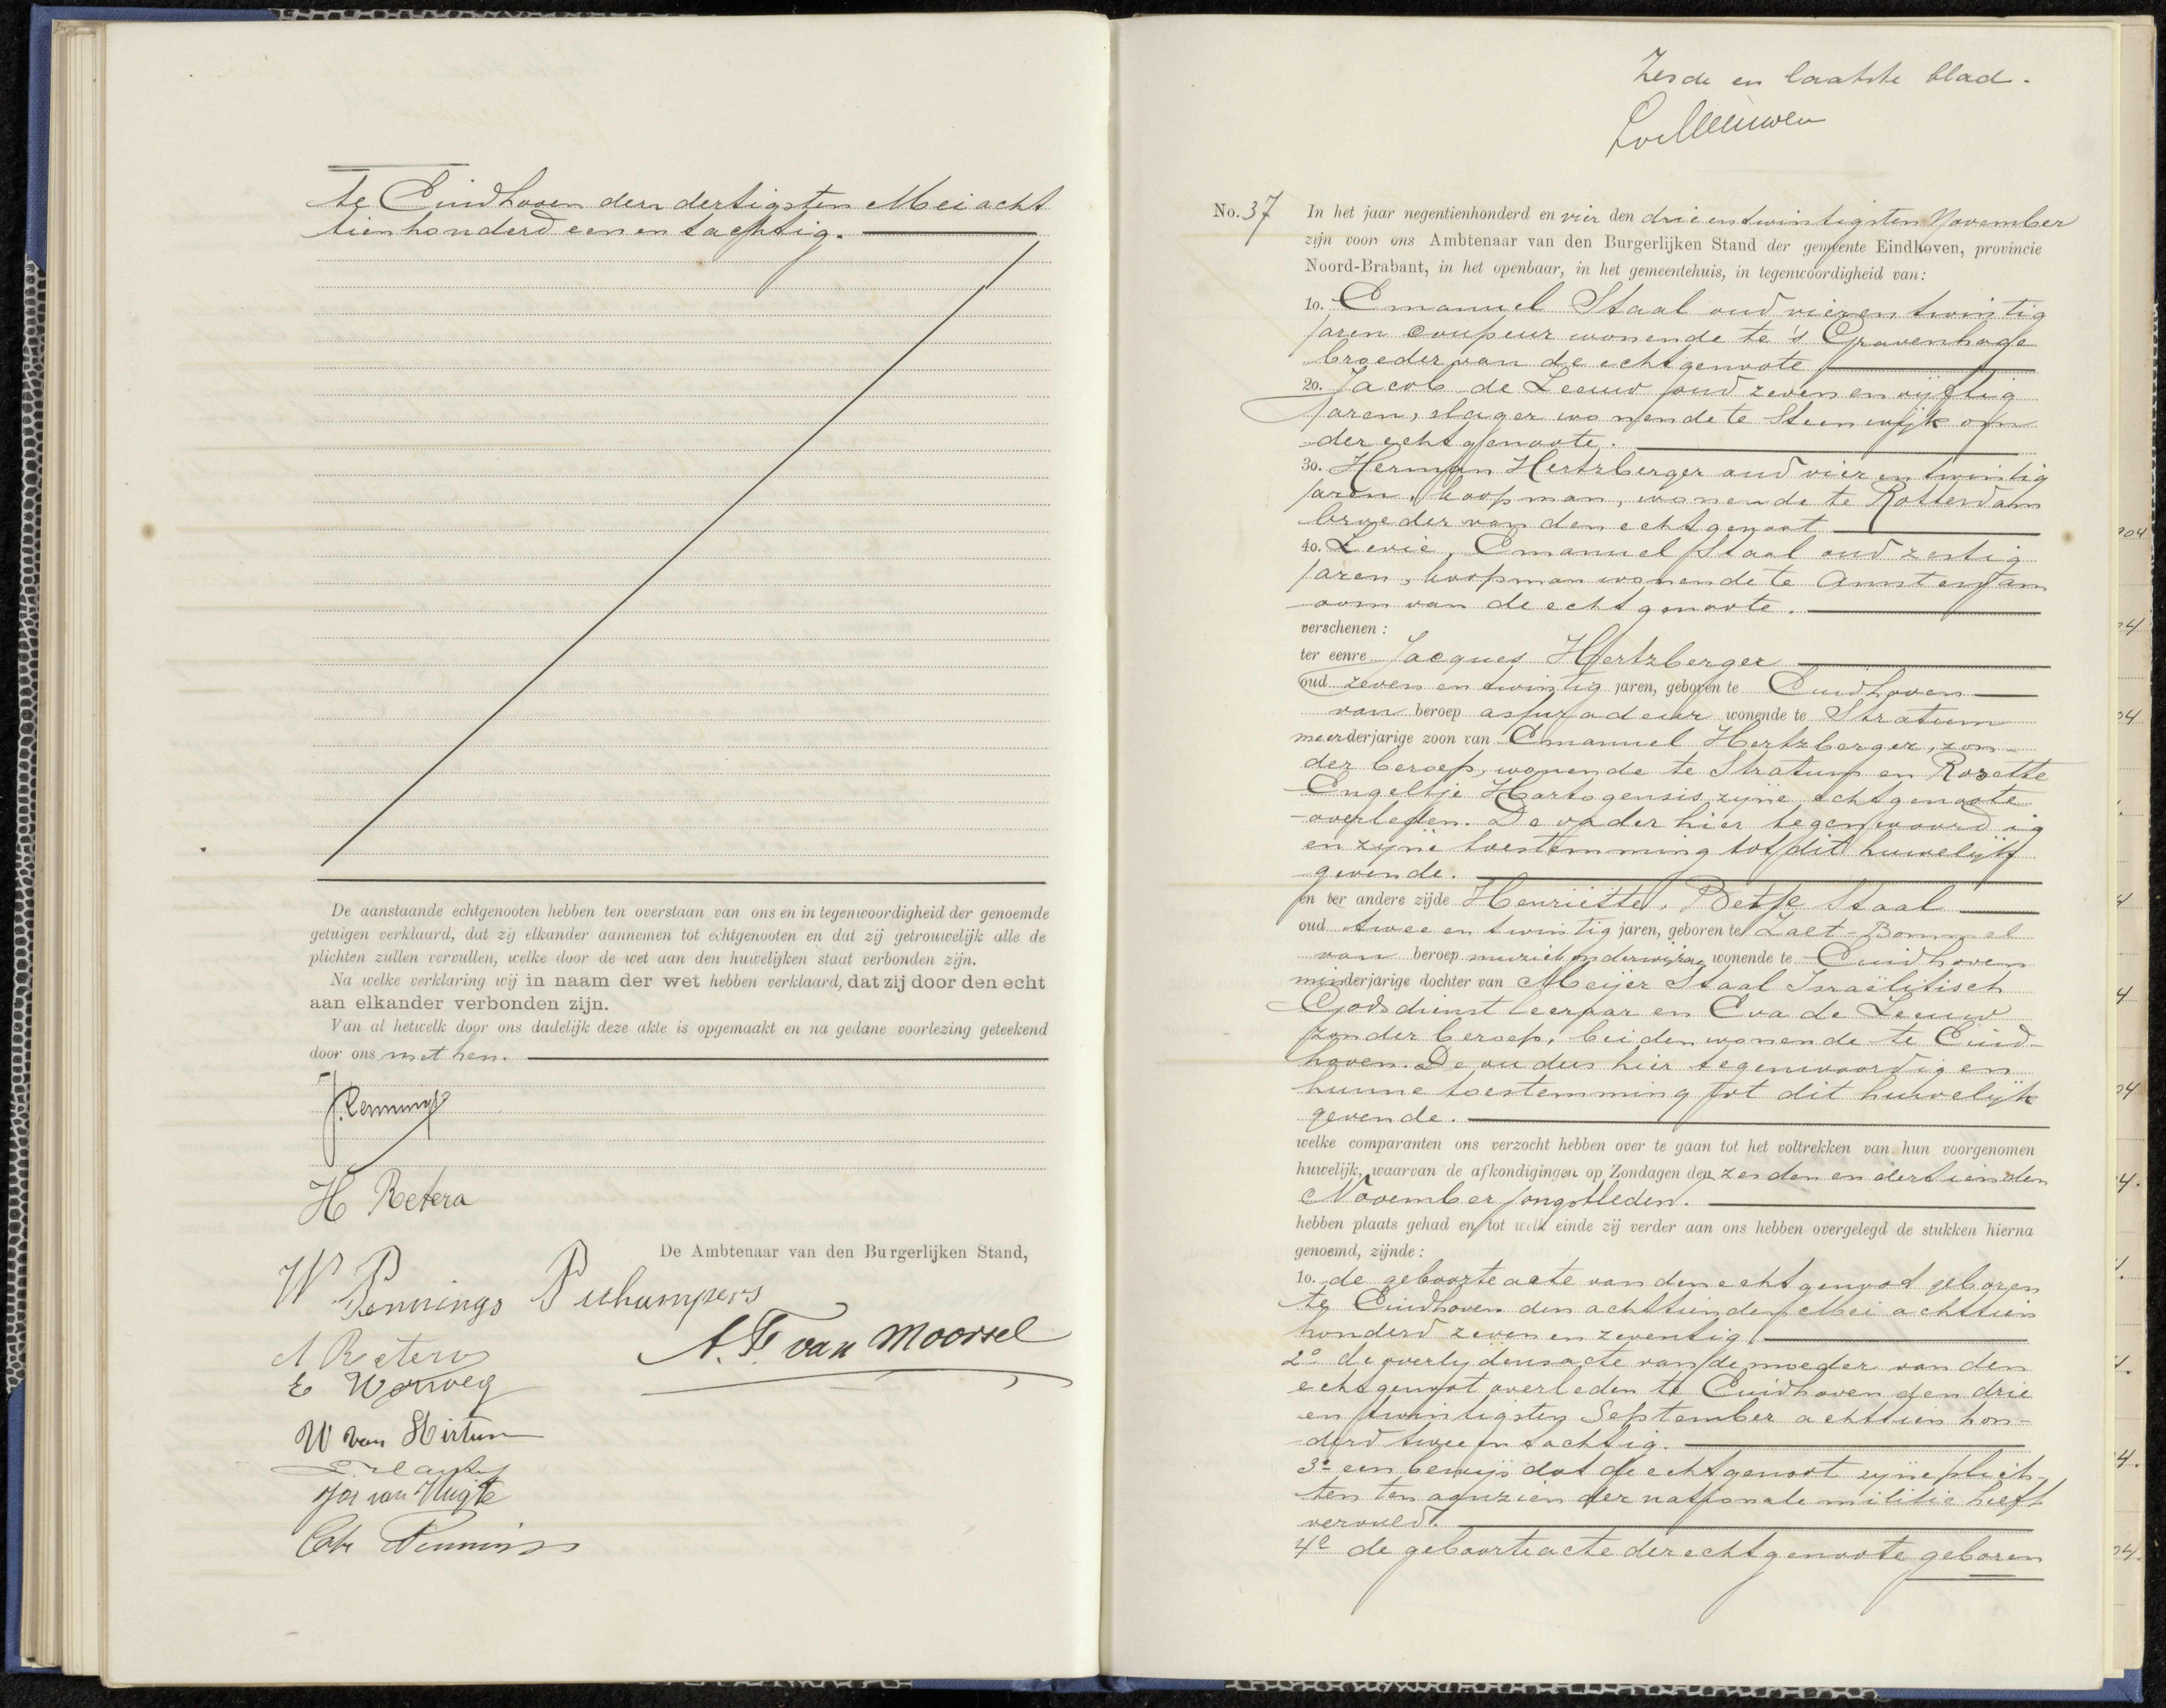 te Eindhoven den dertigsten Mei acht
tienhonderd een en tachtig.
De aanstaande echtgenooten hebben ten overstaan van ons en in tegenwoordigheid der genoemde
getuigen verklaard, dat zij elkander aannemen tot echtgenooten en dat zij getrouwelijk alle de
plichten zullen vervullen, welke door de wet aan den huwelijken staat verbonden zijn.
Na welke verklaring wij in naam der wet hebben verklaard, dat zij door den echt
aan elkander verbonden zijn.
Van al hetwelk door ons dadelijk deze akte is opgemaakt en na gedane voorlezing geteekend
door ons met hen.
J. Pennings
H Retera
De Ambtenaar van den Burgerlijken Stand,
W Pennings
A. F. van Moorsel
A Retera
E Worweg
W van Hirtum
Jos van Vlugte
Cath Pennings
Zesde en laatste blad.
No. 37 In het jaar negentienhonderd en vier den drieentwintigsten November
zijn voor ons Ambtenaar van den Burgerlijken Stand der gemeente Eindhoven, provincie
Noord-Brabant, in het openbaar, in het gemeentehuis, in tegenwoordigheid van:
1o. Emanuel Staal oud vier en twintig
jaren coupeur wonende te 's Gravenhage
broeder van de echtgenoote
2o. Jacob de Leeuw oud zeven en vijftig
jaren, slager wonende te Steenwijk oom
der echtgenoote.
3o. Herman Hertzberger oud vier en twintig
jaren, koopman, wonende te Rotterdam
broeder van den echtgenoot
4o. Levie, Emanuel Staal oud zestig
jaren, koopman wonende te Amsterdam
oom van de echtgenoote.
verschenen:
ter eenre Jacques Hertzberger
oud zeven en twintig jaren, geboren te Eindhoven
van beroep assuradeur wonende te Stratum
meerderjarige zoon van Emanuel Hertzberger, zon-
der beroep, wonende te Stratum en Rozette
Engeltje Hartogensis zijne echtgenoote
overleden. De vader hier tegenwoordig
en zijne toestemming tot dit huwelijk
gevende.
en ter andere zijde Henriëtte, Betje Staal
oud twee en twintig jaren, geboren te Zalt-Bommel
van beroep muziekonderwijzeres wonende te Eindhoven
minderjarige dochter van Meijer Staal Israëlitisch
Godsdienstleeraar en Eva de Leeuw
zonder beroep, beiden wonende te Eind-
hoven. De ouders hier tegenwoordig en
hunne toestemming tot dit huwelijk
gevende.
welke comparanten ons verzocht hebben over te gaan tot het voltrekken van hun voorgenomen
huwelijk, waarvan de afkondigingen op Zondagen den zesden en dertienden
November jongstleden.
hebben plaats gehad en tot welk einde zij verder aan ons hebben overgelegd de stukken hierna
genoemd, zijnde:
1o. de geboorteacte van den echtgenoot geboren
te Eindhoven den achttienden Mei achttien
honderd zeven en zeventig
2o de overlijdensacte van de moeder van den
echtgenoot overleden te Eindhoven den drie
en twintigsten September achttien hon-
derd twee en tachtig.
3o een bewijs dat de echtgenoot zijne plich-
ten ten aanzien der nationale militie heeft
vervuld.
4o de geboorteacte der echtgenoote geboren